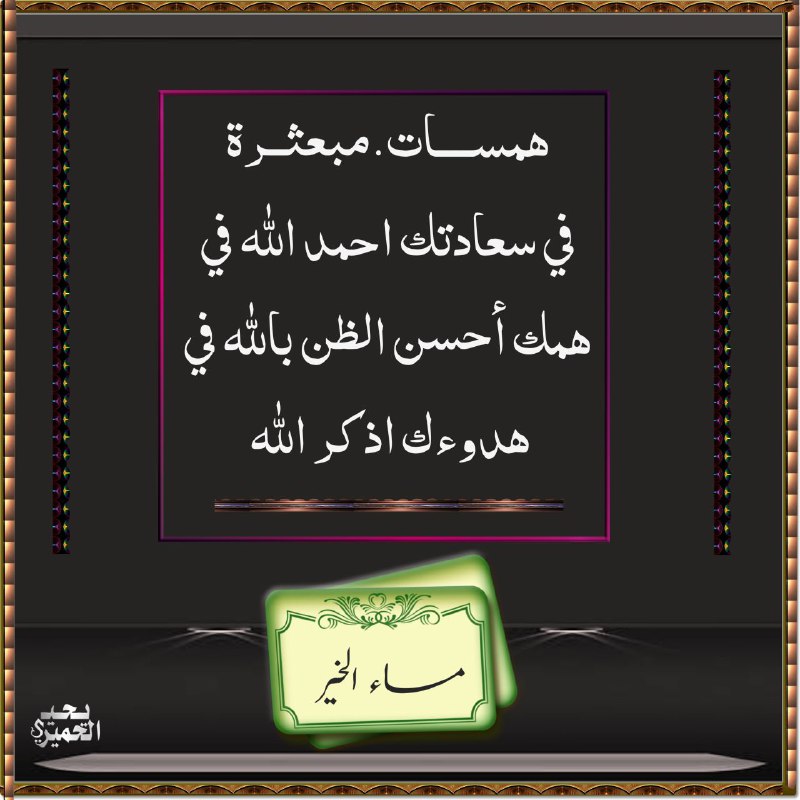 همســـات. مبعثــرة
في سعادتك احمد الله في
همك أحسن الظن بالله في
هدوءك اذكر الله
مساء الخير
يحيى
الحميري